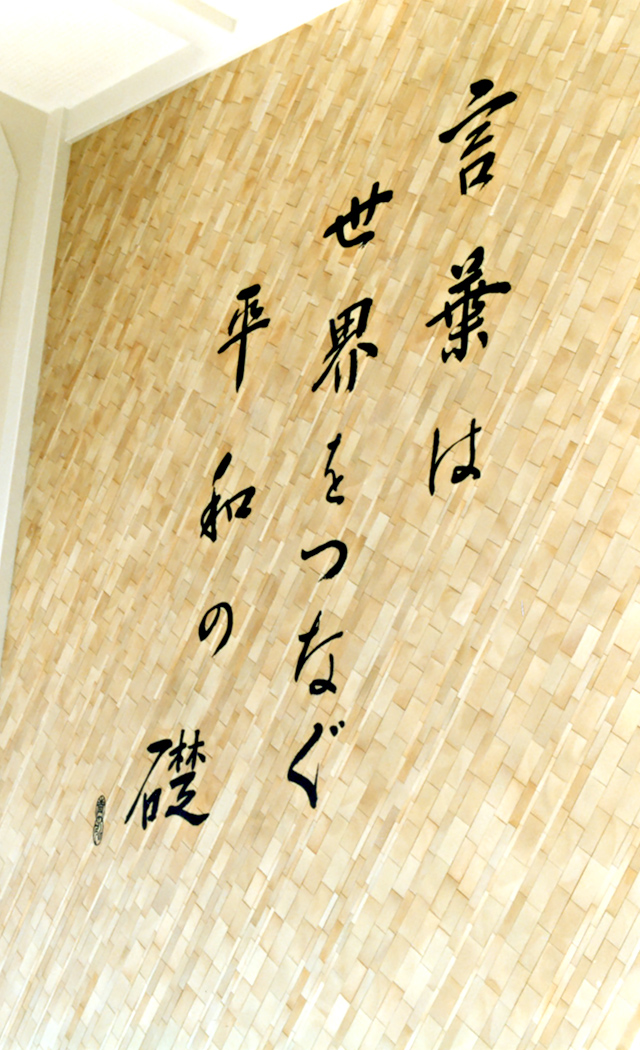 言葉は
世界をつなぐ
平和の礎